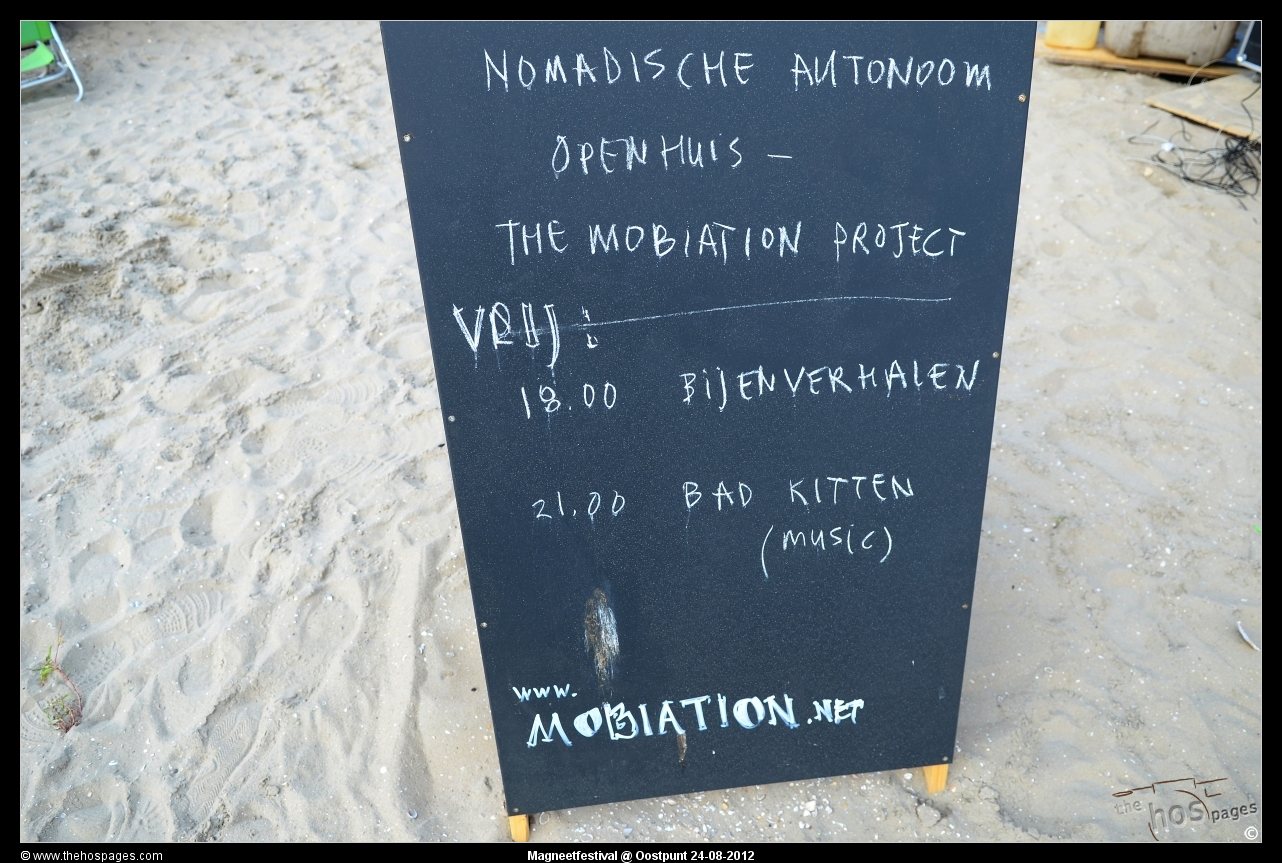 NOMADISCHE AUTONOOM
OPENHUIS –
THE MOBIATION PROJECT
VRIJ:
18.00 BIJENVERHALEN
21.00 BAD KITTEN
(MUSIC)
www.
MOBIATION.NET
the hos pages
©
© www.thehospages.com
Magneetfestival @ Oostpunt 24-08-2012